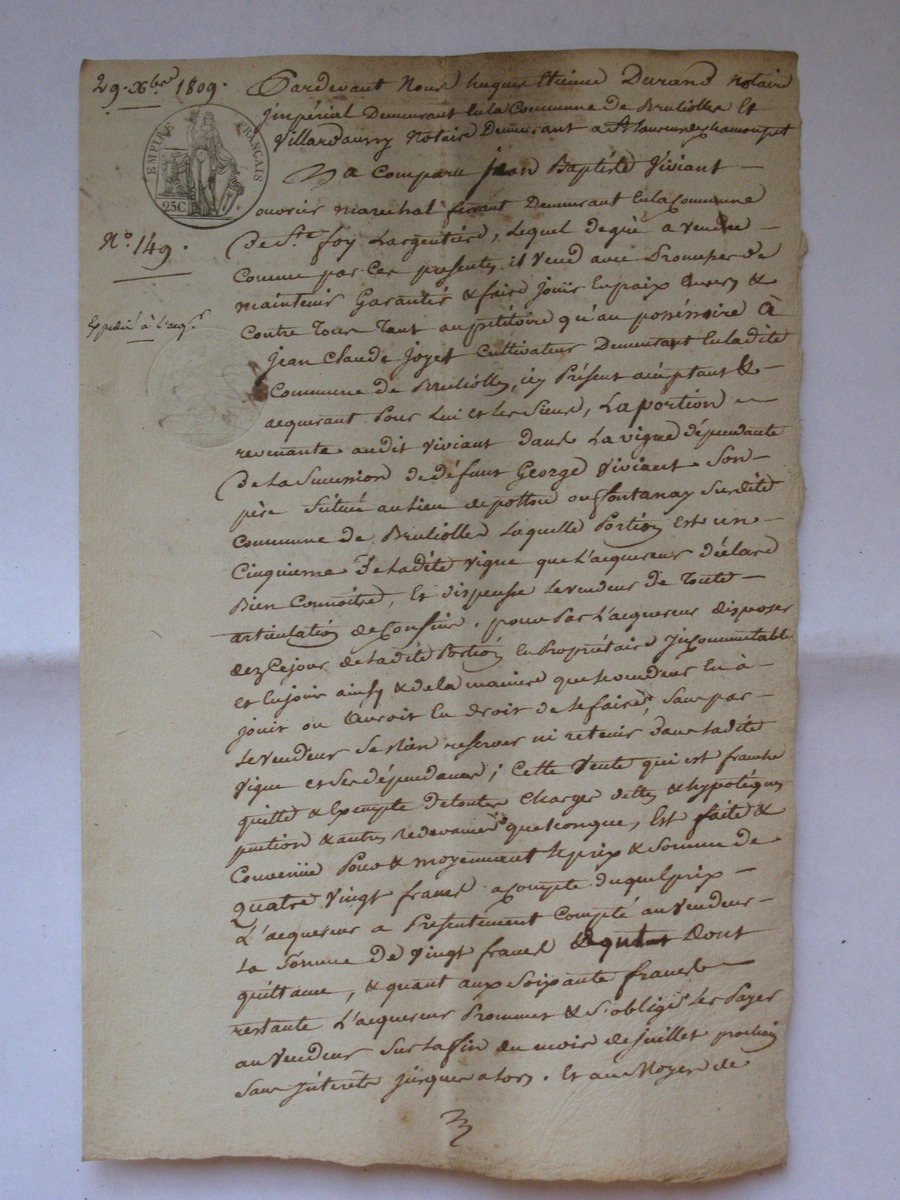 29. Xbre 1809.
EMPIRE FRANÇAIS
25C.
No. 149.
Expedié à l'acqr.
Pardevant Nous hugues Etienne Durand Notaire
jmpérial Demeurant En la Commune de Brulioles Et
Villardaurry Notaire Demeurant a St Laurent de chamousset
a Comparu jean Baptiste Viviant
ouvrier marechal ferant Demeurant En la Commune
De Ste foy Largentière, Lequel de gré a Vendu
Comme par Ces presentes il Vend avec Promesse de
maintenir Garantir & faire jouir En paix Envers &
Contre Tous Tant au pétitoire qu'au possessoire A
jean Claude joyet Cultivateur Demeurant En ladite
Commune de Brulioles, icy Présent acceptant &
acquerant Pour Lui et Les Siens, La portion
revenante audit Viviant Dans La vigne dépendante
De La Succession de défunt George Viviant Son
père Située au Lieu de pottou ou fontanay Susdite
Commune de Brulioles Laquelle Portion Est un
Cinquieme De Ladite Vigne que L'acquereur déclare
Bien Connoitre, Et dispense Le vendeur de Toute
articulation de Confins. pour Par L'acquereur disposer
dez Ce jour de Ladite Portion En Propriétaire jncommutable
et En jouir ainsy & de la maniere que Le vendeur En à
joüit ou Auroit Eu droit de Le faire, Sans par
Le Vendeur Se Rien reserver ni retenir dans Ladite
Vigne et Ses dépendances; Cette Vente qui est franche
quitte & Exempte de toutes Charges dettes & hypotéques
pention & autres redevances quelconque, Est faite &
Convenüe Pour & moyennant Le prix & Somme de
quatre Vingt francs acompte duquel prix
L'acquereur a Présentement Compté au Vendeur
La Somme de Vingt francs Dont
quittance, & quant aux Soixante francs
restante L'acquereur Promet & S'oblige Les Payer
au Vendeur Sur La fin du mois de juillet prochain
Sans jntérêts jusques alors. Et au Moyen de